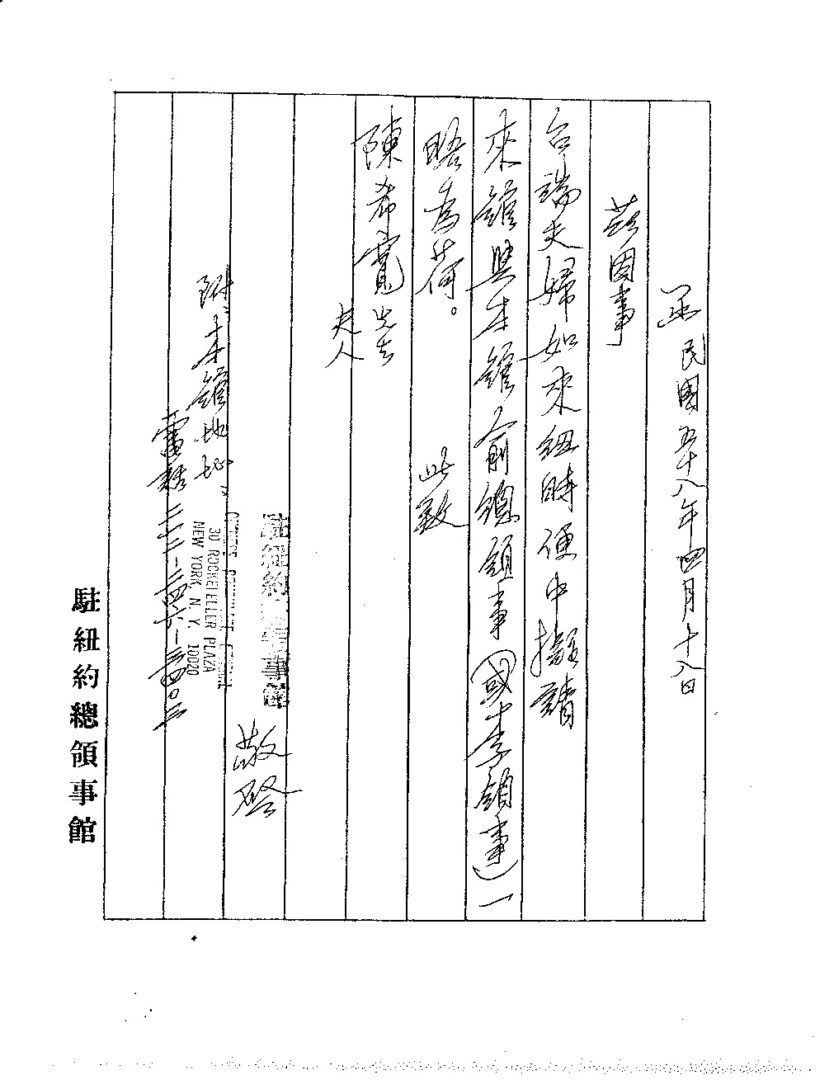 民國五十八年四月十八日
茲因事
台端夫婦如來紐時便中擬請
來館與本館俞總領事(或李領事)一
晤為荷。 此致
陳希寬先生
夫人
駐紐約總領事館 敬啓
CHINESE CONSULATE GENERAL
30 ROCKEFELLER PLAZA
NEW YORK N. Y. 10020
附:本館地址:
電話二一二-二四六-
駐紐約總領事館